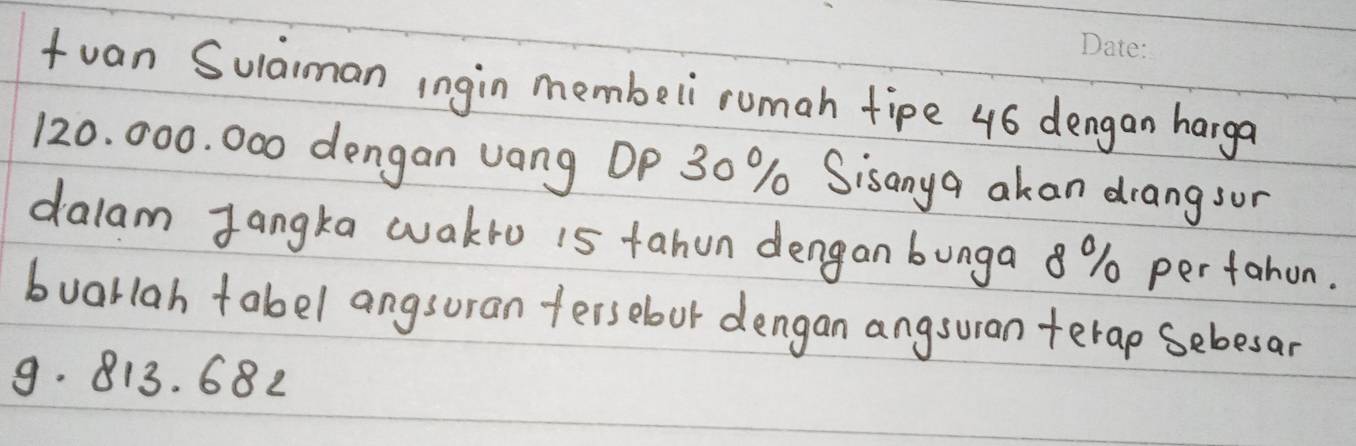 Date:
tuan Sulaiman ingin membeli rumah tipe 46 dengan harga
120.000.000 dengan uang DP 30% Sisanya akan diangsur
dalam Jangka waktu 15 tahun dengan bunga 8% per tahun.
buatlah tabel angsuran tersebut dengan angsuran tetap Sebesar
9.813.682